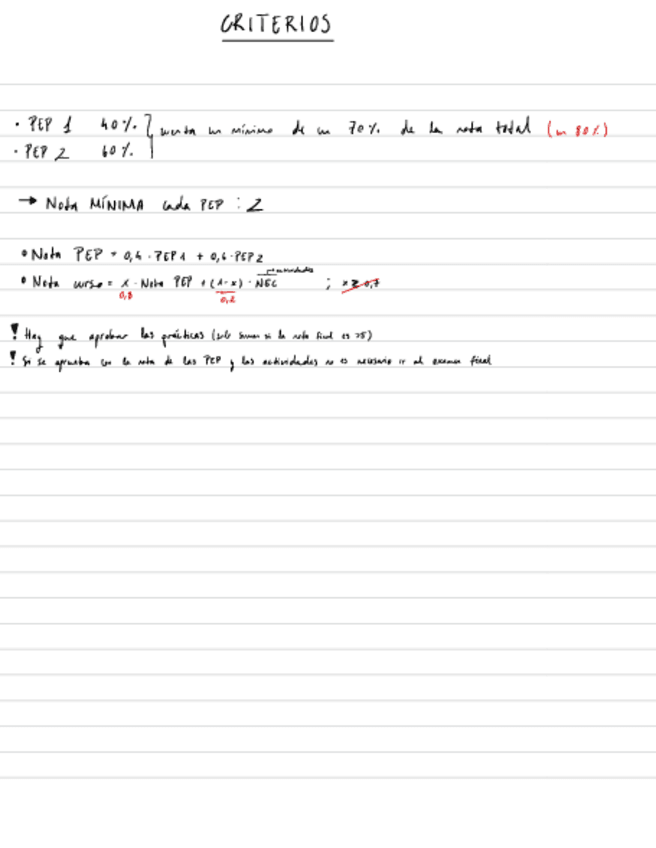 CRITERIOS
· PEP 1 40%. cuenta un mínimo de un 70% de la nota total (un 80%)
· PEP 2 60%.
→ Nota MÍNIMA cada PEP : 2
• Nota PEP = 0,4 · PEP1 + 0,6 · PEP2
actividades
• Nota curso = x · Nota PEP + (1-x) · NEC ; x ≥ 0,7
0,8 0,2
! Hay que aprobar las prácticas (solo suman si la nota final es >5)
! Si se aprueba con la nota de las PEP y las actividades no es necesario ir al examen final